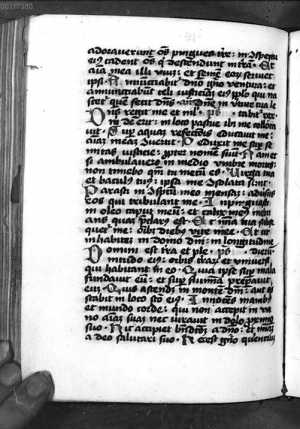 adoraverunt oēs pingues tre: in ꝯspectu
eiꝰ cadent oēs qͥ descendunt in trā. Et
aīa mea illi vivit: et semē meū serviet
ipsi. Annuntiabit dn̄o gn̄atio ventura: et
annuntiabunt celi iusticiā eiꝰ pplo qui na
scet quē fecit dn̄s.
Dn̄s regit me et nil
m̄ de eit: in loco pascue ibi me colloca
vit. Sup aquā refectiōis educavit me:
aīam meā ꝯvertit. Deduxit me sup se
mitas iusticie: ꝓpter nomē suū. Nam et
si ambulavero in medio umbre mortis:
non timebo mala qm̄ tu mecū es. Virga tua
et baculꝰ tuꝰ: ipsa me ꝯsolata sunt.
Parasti in ꝯspectu meo mensā: adversus
eos qui tribulant me. Impinguasti
in oleo caput meū: et calix meꝰ inebri
ans quā p̄clarꝰ est. Et mīa tua subse
quet me: oībꝰ diebꝰ vite mee. Et ut
in habitē in domo dn̄i: in longitudinē
Domini est tra et ple
nitudo eiꝰ: orbis traꝝ et universi
qui habitant in eo. Quia ipse sup maria
fundavit eū: et sup flumina preparavit
eū. Quis ascendit in montē dn̄i: aut quis
stabit in loco scō eiꝰ. Innocens manibꝰ
et mundo corde: qui non accepit in va
no aīam suā nec iuravit in dolo proximo
suo. Hic accipiet bn̄dictionē a dn̄o: et mīam
a deo salutari suo. Hec est gn̄atio querentiū